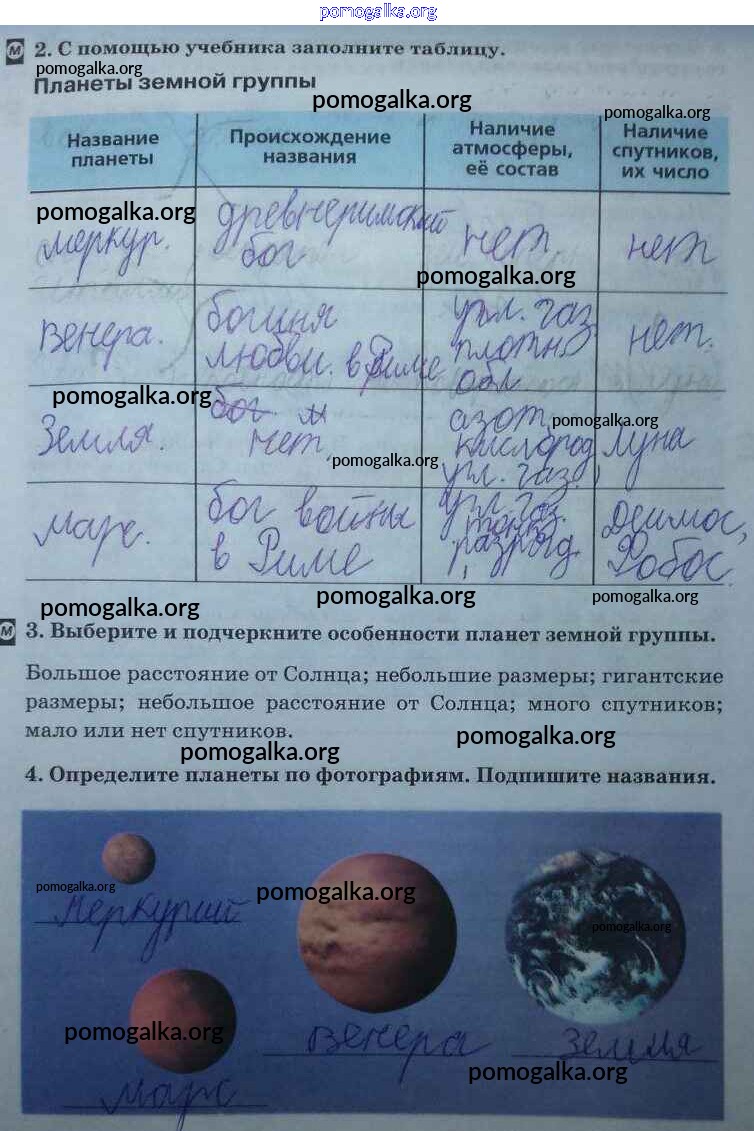 pomogalka.org
М 2. С помощью учебника заполните таблицу.
pomogalka.org
Планеты земной группы
pomogalka.org
pomogalka.org
Название планеты
Происхождение названия
Наличие атмосферы, её состав
Наличие спутников, их число
pomogalka.org
меркур.
древнеримский
бог
нет
нет
pomogalka.org
венера.
богиня
любви. в Риме
угл. газ
плотн
обл
нет.
pomogalka.org
Земля.
бог. м
нет
азот,
кислород
угл. газ.
Луна
pomogalka.org
pomogalka.org
марс.
бог войны
в Риме
угл. газ.
Деимос,
Фобос.
pomogalka.org
pomogalka.org
pomogalka.org
М 3. Выберите и подчеркните особенности планет земной группы.
Большое расстояние от Солнца; небольшие размеры; гигантские
размеры; небольшое расстояние от Солнца; много спутников;
мало или нет спутников.
pomogalka.org
pomogalka.org
4. Определите планеты по фотографиям. Подпишите названия.
pomogalka.org
pomogalka.org
pomogalka.org
Меркурий
pomogalka.org
венера
земля
pomogalka.org
марс